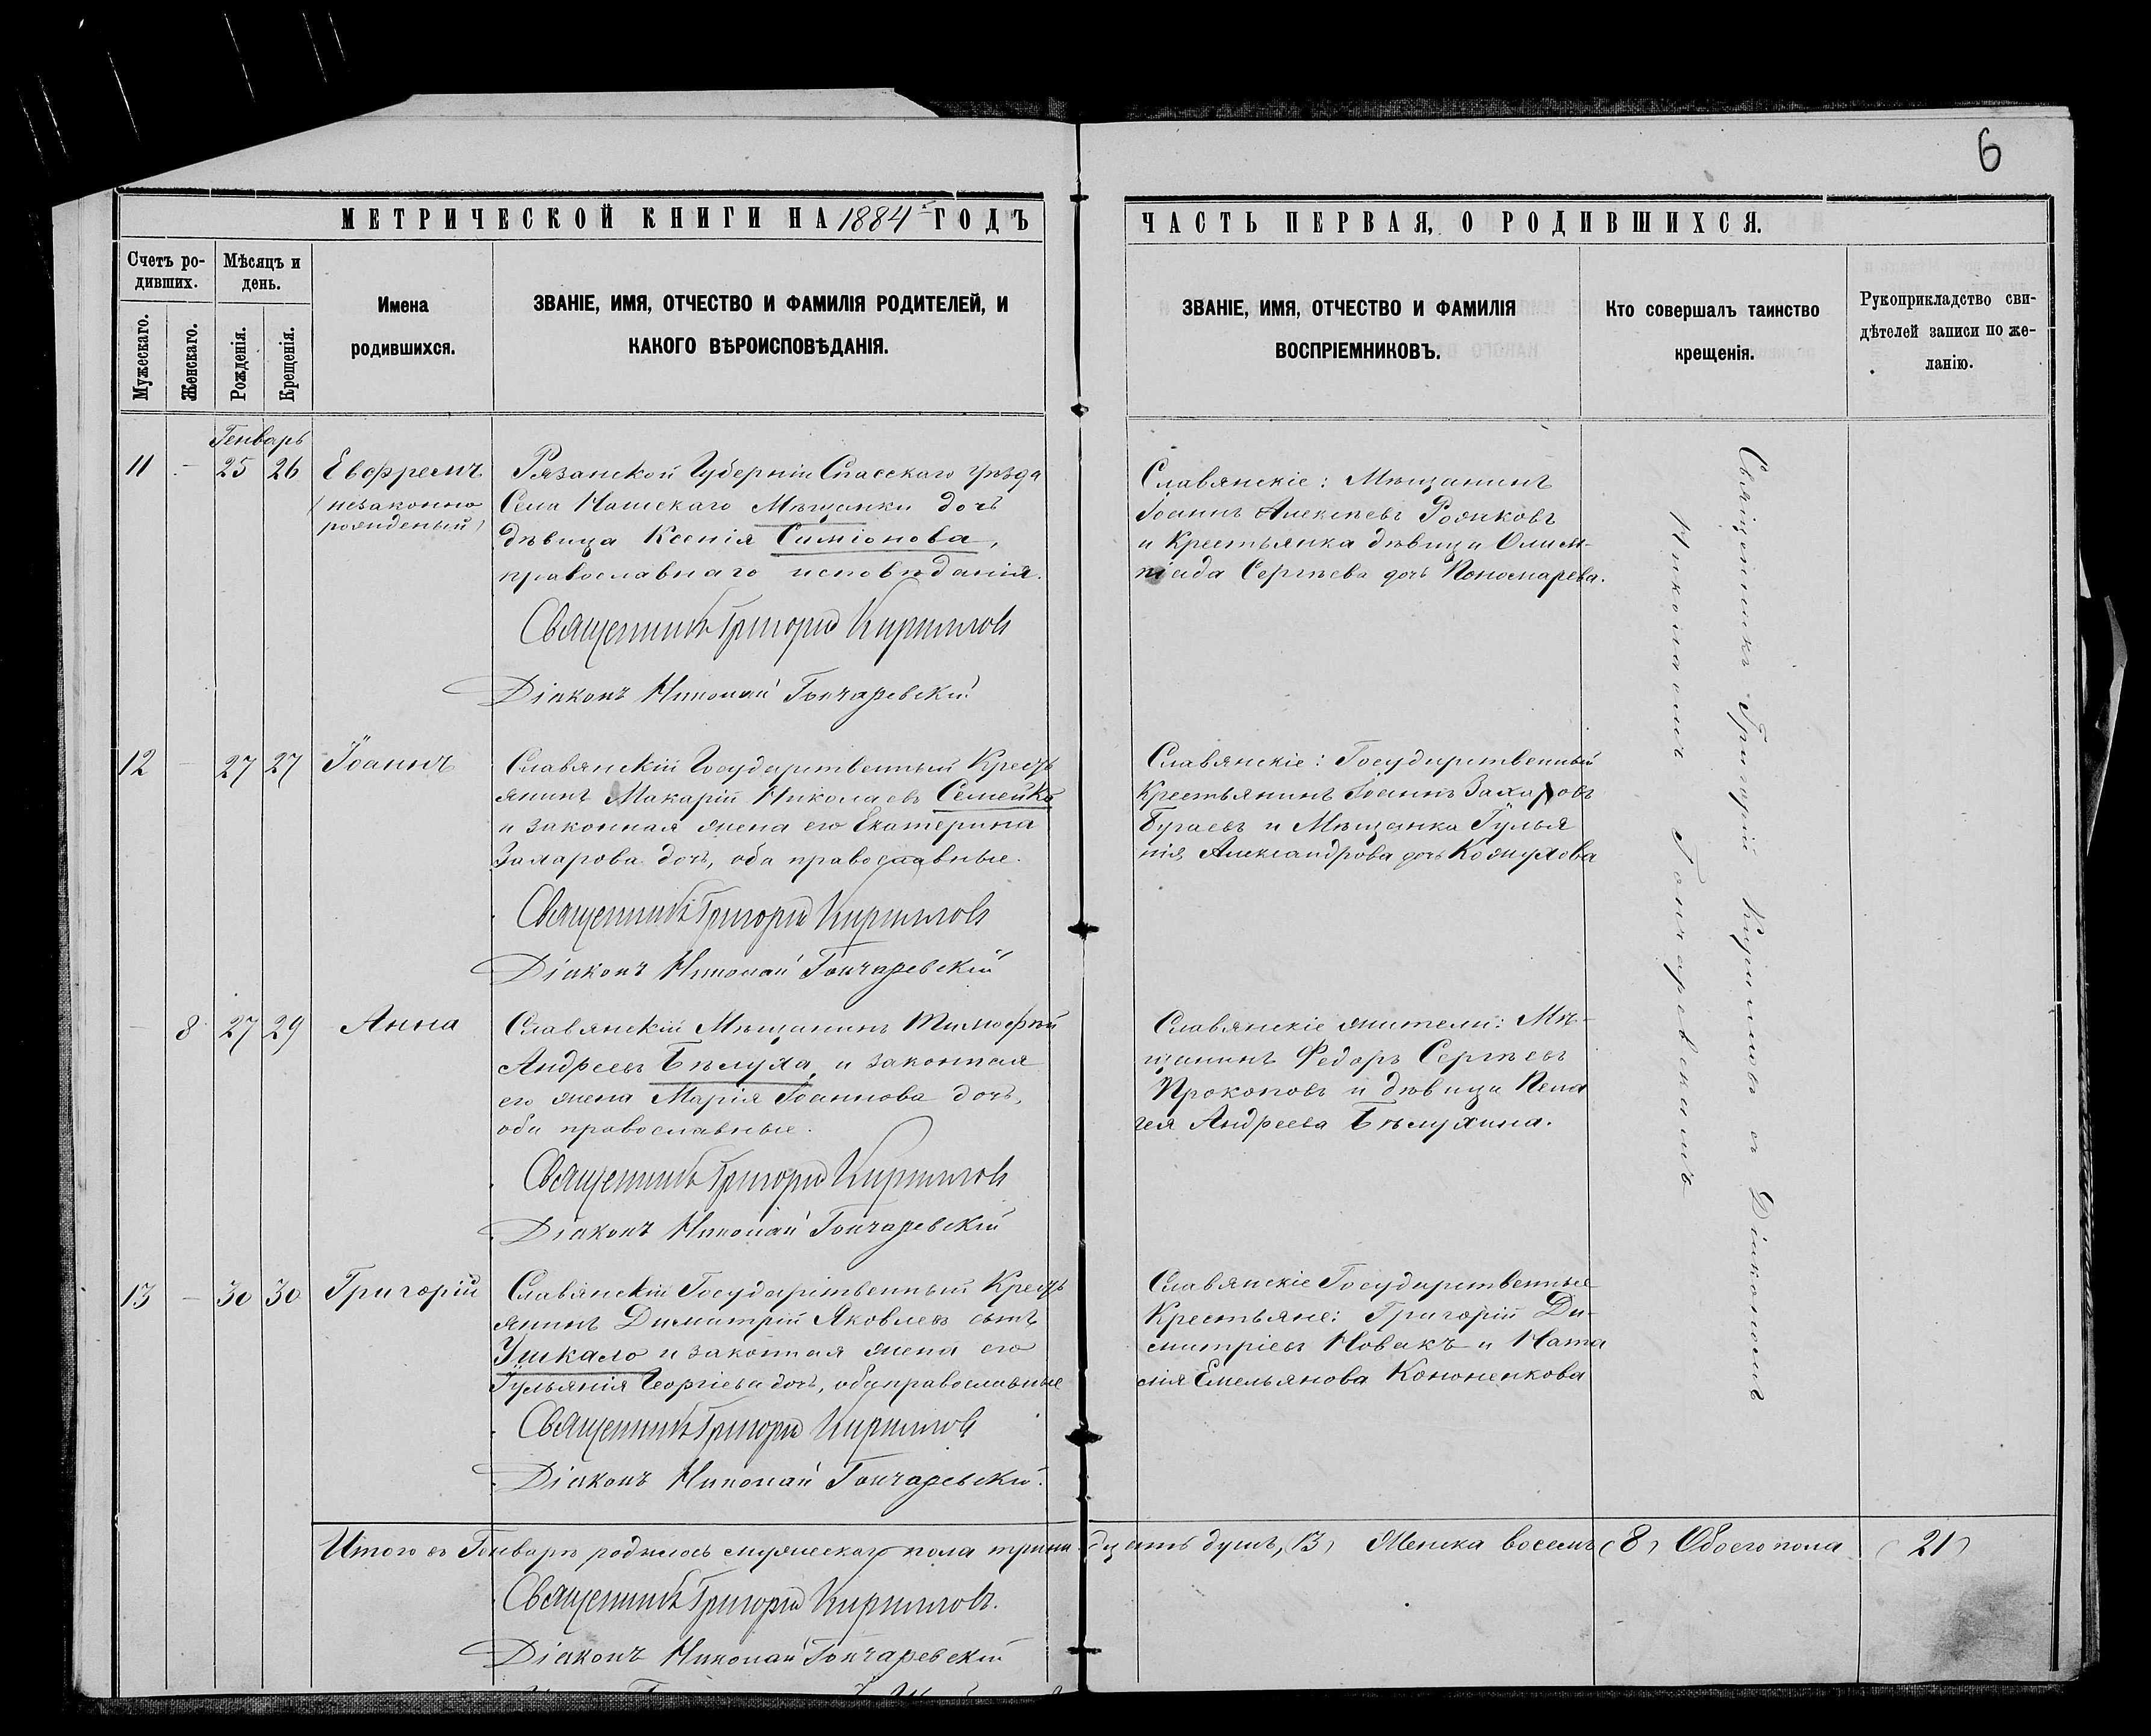 6
МЕТРИЧЕСКОЙ КНИГИ НА 1884й ГОДЪ
Счетъ ро-
дивших.
Мѣсяцъ и
день.
Мужескаго.
Женскаго.
Рожденія.
Крещенія.
Имена
родившихся.
ЗВАНІЕ, ИМЯ, ОТЧЕСТВО И ФАМИЛІЯ РОДИТЕЛЕЙ, И
КАКОГО ВѢРОИСПОВѢДАНІЯ.
Генварь
11 - 25 26 Евфремъ
(незаконно
рожденый)
Рязанской Губерніи Спасскаго уѣзда
Села Мѣщанки дочь
дѣвица Ксенія Симіонова,
православнаго исповѣданія.
Священникъ Григорій Кириллов
Діаконъ Николай Гончаревскій
12 - 27 27 Іоаннъ
Славянскій Государственный Кресть
янинъ Макарій Николаевъ Семейко
и законная жена его Екатерина
Захарова дочь, оба православные.
Священникъ Григорій Кириллов
Діаконъ Николай Гончаревскій
- 8 27 29 Анна
Славянскій Мѣщанинъ Тимофей
Андреевъ Бѣлуха, и законная
его жена Марія Іоаннова дочь,
оба православные.
Священникъ Григорій Кириллов
Діаконъ Николай Гончаревскій
13 - 30 30 Григорій
Славянскій Государственный Кресть
янинъ Димитрій Яковлевъ сынъ
Ушкало и законная жена его
Іульянія Георгіева дочь, оба православные
Священникъ Григорій Кириллов
Діаконъ Николай Гончаревскій.
Итого въ Генварѣ родилось мужескаго пола трина
Священникъ Григорій Кирилловъ.
Діаконъ Николай Гончаревскій
ЧАСТЬ ПЕРВАЯ, О РОДИВШИХСЯ.
ЗВАНІЕ, ИМЯ, ОТЧЕСТВО И ФАМИЛІЯ
ВОСПРІЕМНИКОВЪ.
Кто совершалъ таинство
крещенія.
Рукоприкладство сви-
дѣтелей записи по же-
ланію.
Славянскіе: Мѣщанинъ
Іоаннъ Алексѣевъ
и Крестьянка дѣвица Олим-
піада Сергѣева дочь Пономарева.
Славянскіе: Государственный
Крестьянинъ Іоаннъ Захаровъ
Бугаевъ и Мѣщанка Іулья
нія Александрова дочь Кожухова
Славянскіе жители: Мѣ-
щанинъ Федоръ Сергѣевъ
Прокоповъ и дѣвица Пела
гея Андреева Бѣлухина.
Славянскіе Государственные
Крестьяне: Григорій Ди-
митріевъ Новакъ и Ната
лія Емельянова Кононенкова
Священникъ Григорій Кирилловъ съ Діакономъ
Николаемъ Гончаревскимъ
дцать душъ, (13) Женска восемь (8) Обоего пола (21)